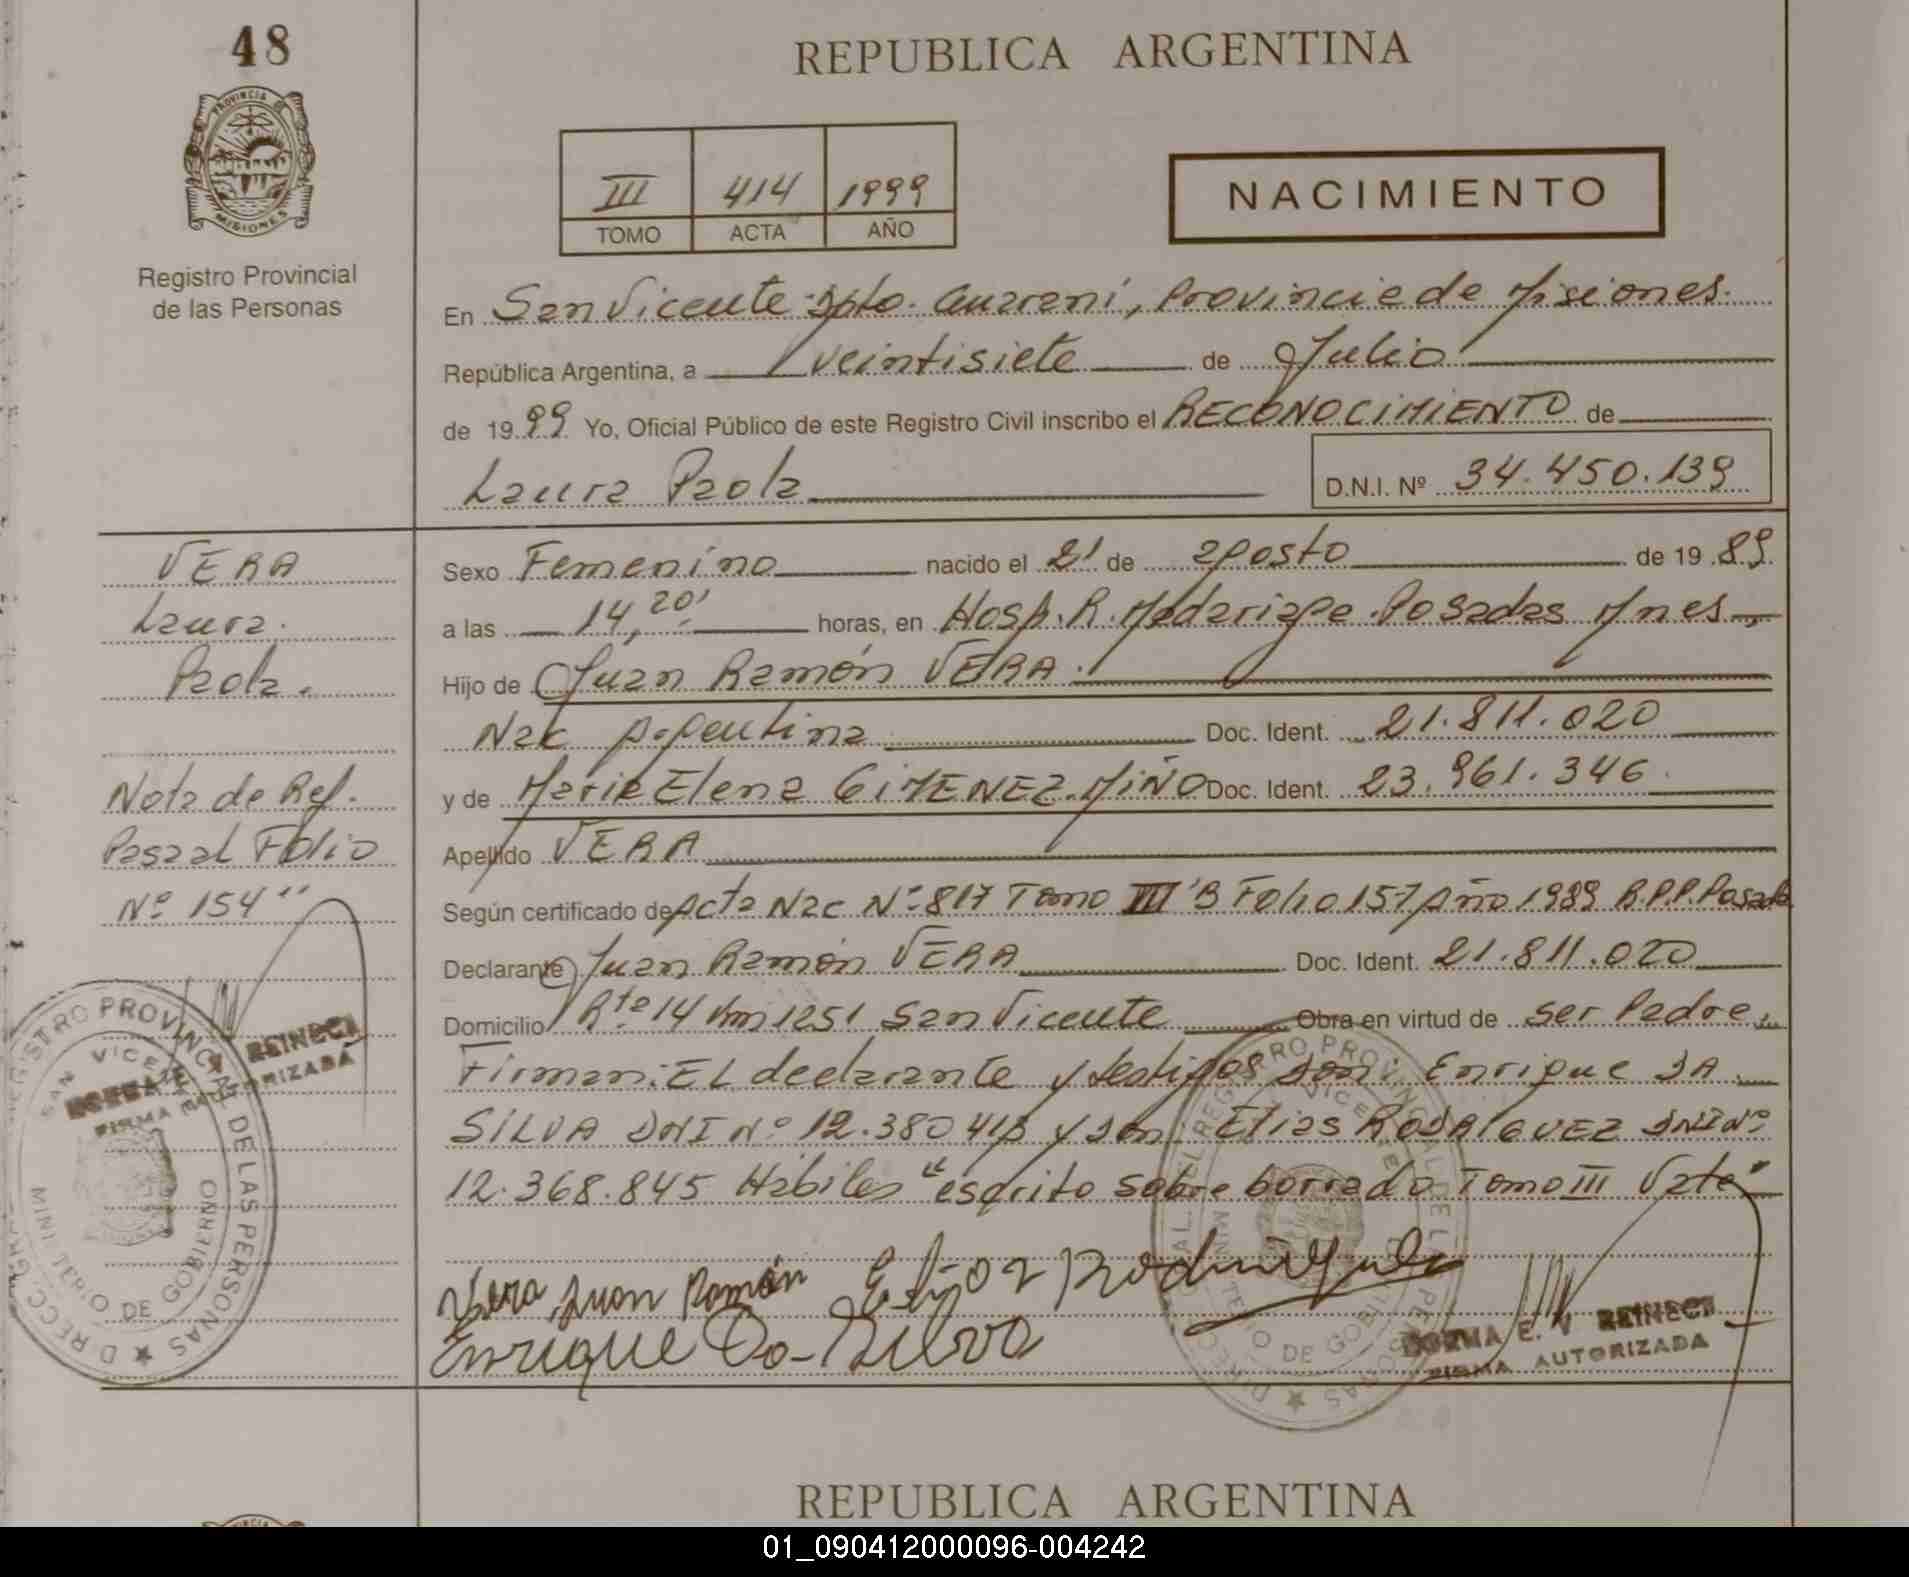 48
REPUBLICA ARGENTINA
PROVINCIA
MISIONES
Registro Provincial
de las Personas
III 414 1999
TOMO ACTA AÑO
NACIMIENTO
En San Vicente Dpto. Guarani, Provincia de Misiones.
República Argentina, a veintisiete de Julio
de 1999 Yo, Oficial Público de este Registro Civil inscribo el RECONOCIMIENTO de
Laura Paola D.N.I. Nº 34.450.139
VERA
Laura.
Paola.
Nota de Ref.
Pasa al Folio
Nº 154"
Sexo Femenino nacido el 21 de agosto de 1989.
a las 14,20' horas, en Hosp. R. Madariaga Posadas Mnes
Hijo de Juan Ramón VERA.
Nac Argentina Doc. Ident. 21.811.020
y de Maria Elena GIMENEZ MIÑO Doc. Ident. 23.961.346
Apellido VERA
Según certificado de Acta Nac Nº 817 Tomo III B Folio 157 Año 1989 R.P.P. Posadas
Declarante Juan Ramón VERA Doc. Ident. 21.811.020
Domicilio Rta 14 Km 1251 San Vicente Obra en virtud de ser Padre.
Firman: El declarante y testigos Don: Enrique DA
SILVA DNI Nº 12.380.413 y Don: Elias RODRIGUEZ DNI Nº
12.368.845 Habiles "escrito sobre borrado Tomo III Vale"
Vera, Juan Ramón
Enrique Da Silva
DIRECC. GRAL. DEL REGISTRO PROVINCIAL DE LAS PERSONAS
SAN VICENTE
MINISTERIO DE GOBIERNO
NORMA E. V. REINECK
FIRMA AUTORIZADA
DIRECC. GRAL. DEL REGISTRO PROVINCIAL DE LAS PERSONAS
MINISTERIO DE GOBIERNO
FIRMA AUTORIZADA
REPUBLICA ARGENTINA
01_090412000096-004242